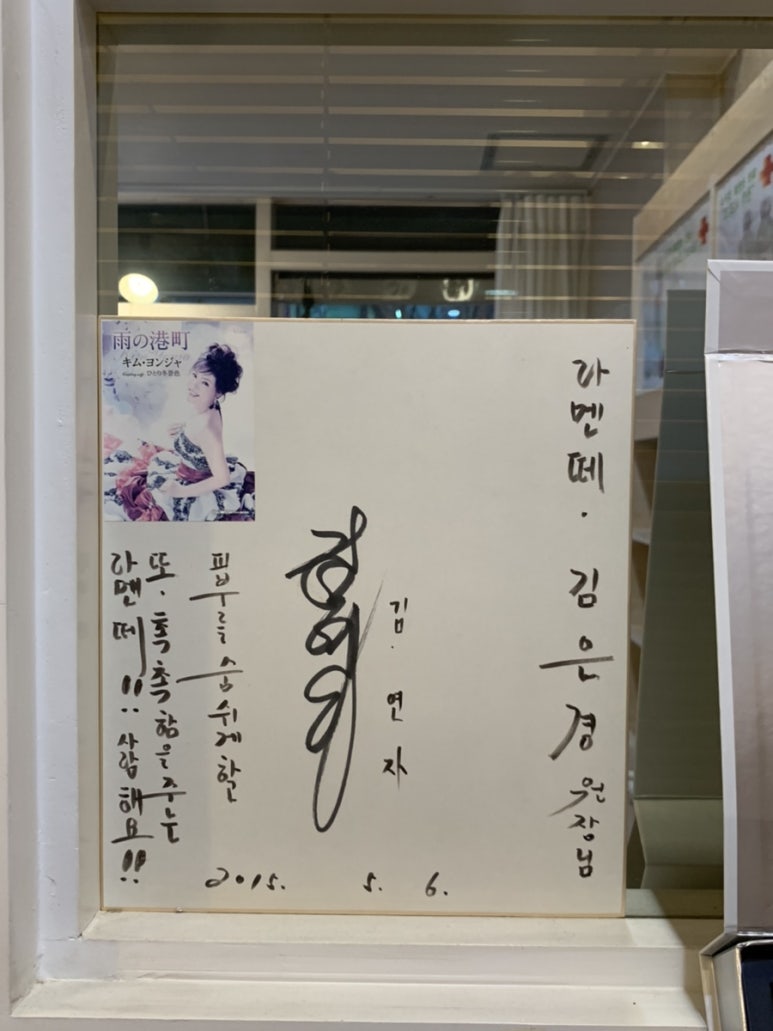 라멘떼. 김은경 원장님
김. 연자
피부를 숨쉬게 할
또. 촉촉함을 주는
라멘떼!! 사랑해요!!
2015. 5. 6.
雨の港町
キム・ヨンジャ
ひとり冬景色